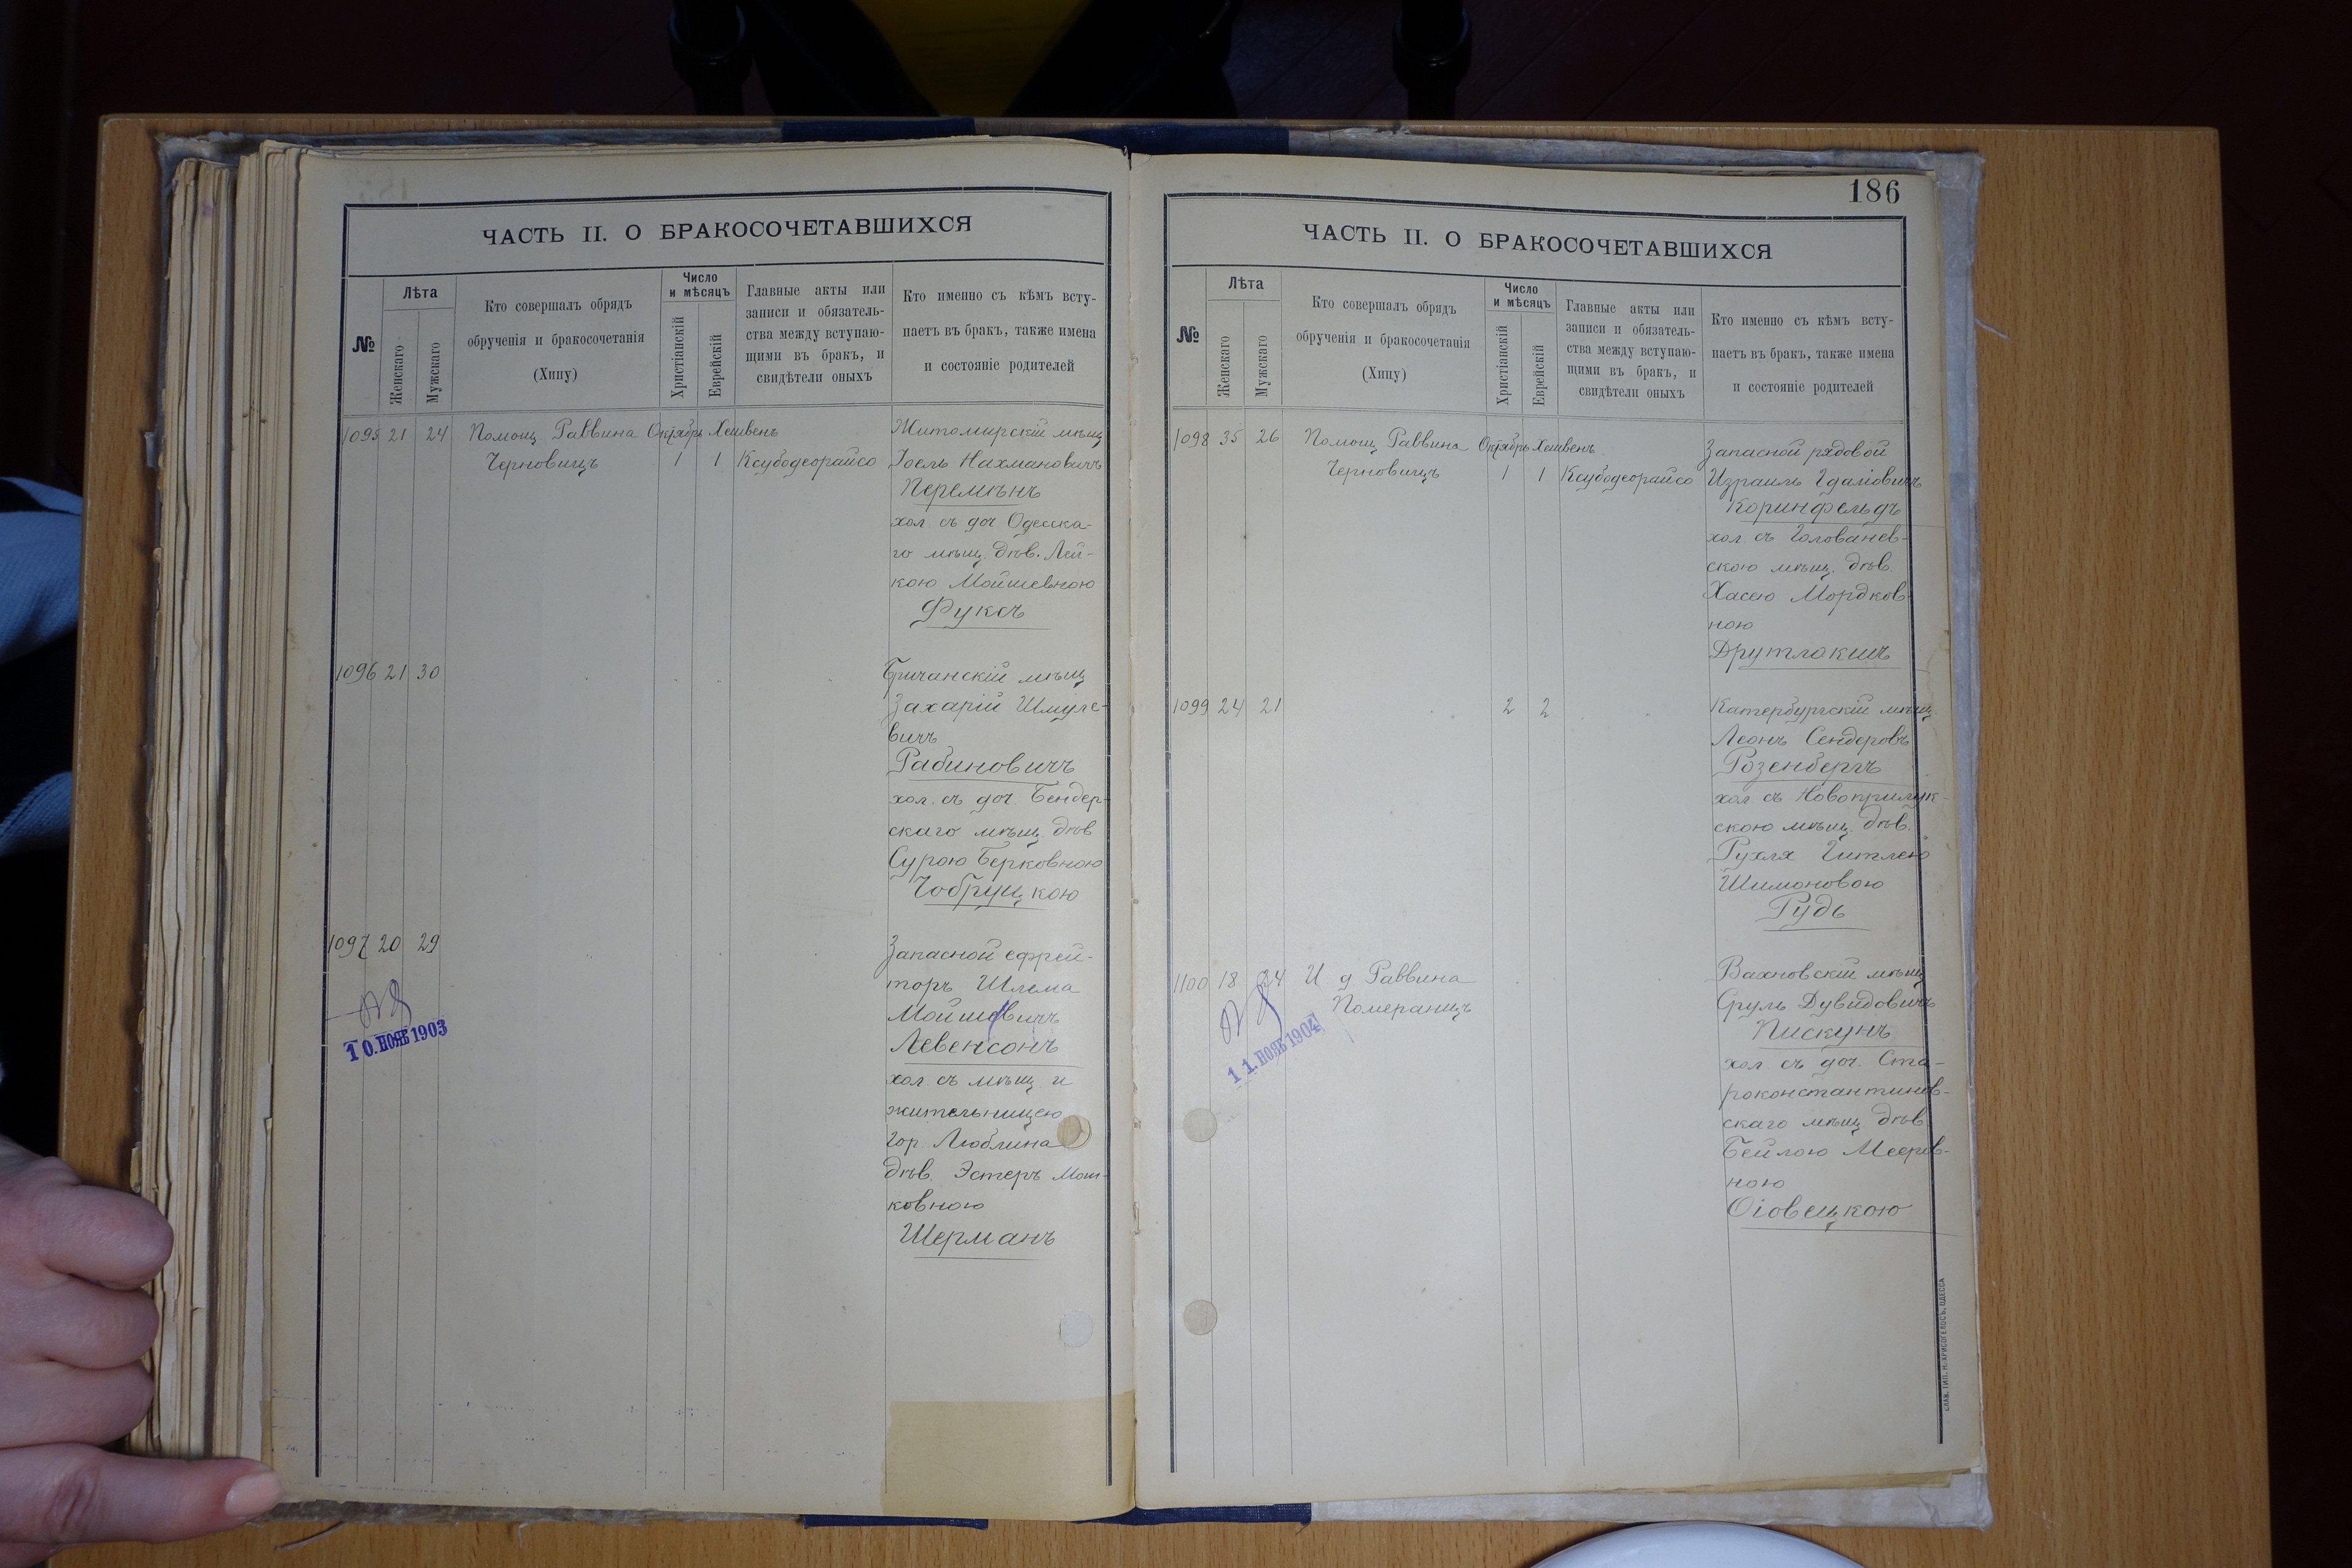 ЧАСТЬ II. О БРАКОСОЧЕТАВШИХСЯ
№
Лѣта
Женскаго
Мужскаго
Кто совершалъ обрядъ
обрученія и бракосочетанія
(Хипу)
Число
и мѣсяцъ
Христіанскій
Еврейскій
Главные акты или
записи и обязатель-
ства между вступаю-
щими въ бракъ, и
свидѣтели оныхъ
Кто именно съ кѣмъ всту-
паетъ въ бракъ, также имена
и состояніе родителей
1095 21 24 Помощ. Раввина Октябрь Хешвенъ Житомирскій мѣщ
Черновицъ 1 1 Ксубодеорайсо Іоель Нахмановичъ
Перемѣнъ
хол съ доч Одесска-
го мѣщ. дѣв. Лей-
кою Мойшевною
Фуксъ
1096 21 30 Бричанскій мѣщ
Захарій Шмуле-
вичъ
Рабиновичъ
хол. съ доч. Бендер-
скаго мѣщ. дѣв
Сурою Берковною
Чобруцкою
1097 20 29 Запасной ефрей-
торъ Шлема
Мойшевичъ
Левенсонъ
хол съ мѣщ. и
жительницею
гор Люблина
дѣв. Эстеръ Мош-
ковною
Шерманъ
10. НОЯБ 1903
186
ЧАСТЬ II. О БРАКОСОЧЕТАВШИХСЯ
№
Лѣта
Женскаго
Мужскаго
Кто совершалъ обрядъ
обрученія и бракосочетанія
(Хипу)
Число
и мѣсяцъ
Христіанскій
Еврейскій
Главные акты или
записи и обязатель-
ства между вступаю-
щими въ бракъ, и
свидѣтели оныхъ
Кто именно съ кѣмъ всту-
паетъ въ бракъ, также имена
и состояніе родителей
1098 35 26 Помощ Раввина Октябрь Хешвенъ Запасной рядовой
Черновицъ 1 1 Ксубодеорайсо Израиль Гдаліовичъ
Коринфельдъ
хол съ Голованев-
скою мѣщ. дѣв.
Хасею Мордков-
ною
1099 24 21 2 2 Катербургскій мѣщ.
Леонъ Сендеровъ
Розенбергъ
хол съ Новоприлук-
скою мѣщ. дѣв.
Рухля Гитлею
Шимоновою
Рудь
1100 18 24 И д Раввина Вахновскій мѣщ
Померанцъ Сруль Дувидовичъ
Пискунъ
хол. съ доч. Ста-
роконстантинов-
скаго мѣщ. дѣв
Бейлою Мееров-
ною
Оіовецкою
11. НОЯБ 1904
СЛАВ. ТИП. Н. ХРИСОГЕЛОСЪ, ОДЕССА